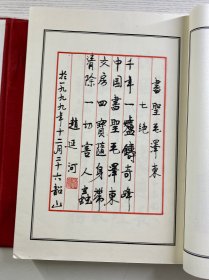 書聖毛澤東
七绝
千年一盛鑄奇峰
中国書聖毛澤東
文房四寶隨身帶
清除一切害人虫
趙延河
於一九九九年十二月二十六韶山